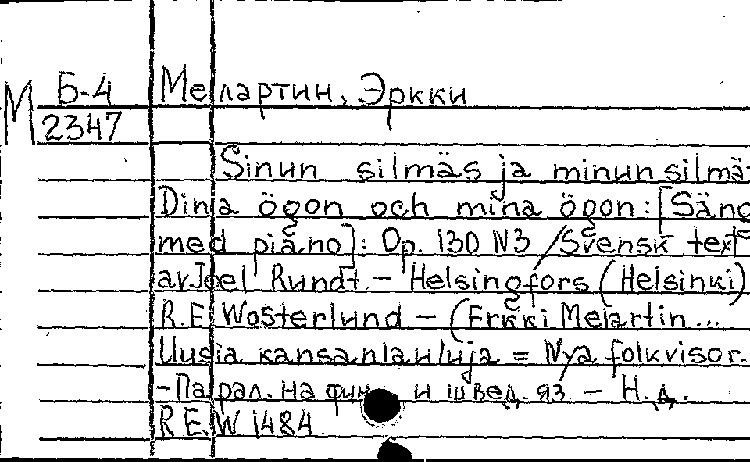 М Б-4 Мелартин, Эркки
2347
Sinun silmäs ja minun silmä
Dina ögon och mina ögon: [Sång
med piano]: Op. 130 N3 / Svensk text
av Joel Rundt. - Helsingfors (Helsinki)
R.E. Wosterlund - (Erkki Melartin...
Uusia kansanlauluja = Nya folkvisor.
- Парал. на фин. и швед. яз - Н.д.
R.E.W 1484